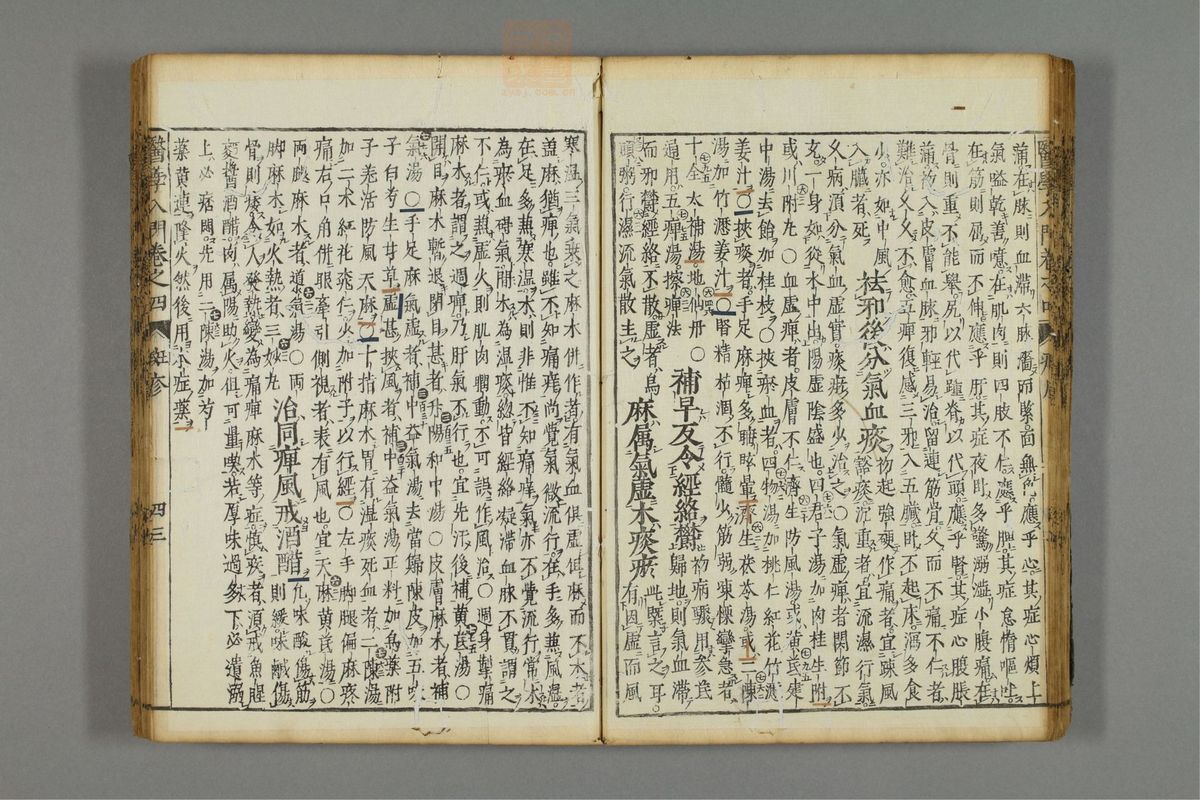 蒲在脉則血滯六脉濇而緊面無色應乎心其症心煩上
氣嗌乾善噫在肌肉則四肢不仁應乎脾其症怠惰嘔吐
在筋則屈而不伸應乎肝其症夜臥多驚溺澁小腹痛在
骨則重不能舉尻以代踵脊以代頭應乎腎其症心腹脹
蒲初入皮膚血脉邪輕易治留連筋骨久而不痛不仁者
難治久久不愈五痺復感三邪入五臓臥不起床瀉多食
少亦如中風
入臓者死 祛邪後分氣血痰 初起強硬作痛者宜疎風豁痰沉重者宜流濕行氣
久病須分氣血虛實痰瘀多少治之○氣虛痺者関節不
充一身如從水中出陽虛陰盛也四君子湯加肉桂生附
或川附丸○血虛痺者皮膚不仁濟生防風湯或黃芪建
中湯去飴加桂枝○挾瘀血者四物湯加桃仁紅花竹瀝
姜汁○挾痰者手足麻痺多睡眩暈濟生茯苓湯或二陳
湯加竹瀝姜汁○腎精枯涸不行髓少筋弱凍慄攣急者
十全大補湯地仙丹○
通用五痺湯擦痺法 補早反令經絡欝 初病驟用參芪歸地則氣血滯
而邪欝經絡不散虛者烏
頭粥行濕流氣散主之 麻属氣虛木痰瘀 此槩言之耳有因虛而風
寒濕三氣乘之麻木併作者有氣血俱虛但麻而不木者
盖麻猶痺也雖不知痛癢尚覺氣微流行在手多兼風濕
在足多兼寒濕木則非惟不知痛癢氣亦不覺流行常木
為瘀血碍氣間木為濕痰緫皆經絡凝滯血脉不貫謂之
不仁或兼虛火則肌肉瞤動不可誤作風治○週身掣痛
麻木者謂之週痺乃肝氣不行也宜先汗後補黃芪湯○
開目麻木暫退閉目甚者升陽和中湯○皮膚麻木者補
氣湯○手足麻氣虛者補中益氣湯去當歸陳皮加五味
子白芍生甘草虛甚挾風者補中益氣湯正料加烏藥附
子羗活防風天麻○十指麻木胃有濕痰死血者二陳湯
加二术紅花桃仁少加附子以行經○左手脚腿偏麻疼
痛右口角併眼牽引側視者表有風也宜天麻黃芪湯○
兩臓麻木者道氣湯○兩
脚麻木如火熱者三妙丸 治同痺風戒酒醋 尣味酸傷筋則緩味鹹傷
骨則痿令人發熱變為痛痺麻木等症慎疾者須戒魚腥
麥醬酒醋肉属陽助火但可量喫若厚味過多下必遺溺
上必痞悶先用二陳湯加芍
藥黃連降火然後用本症藥
醫學入門卷之四
四三